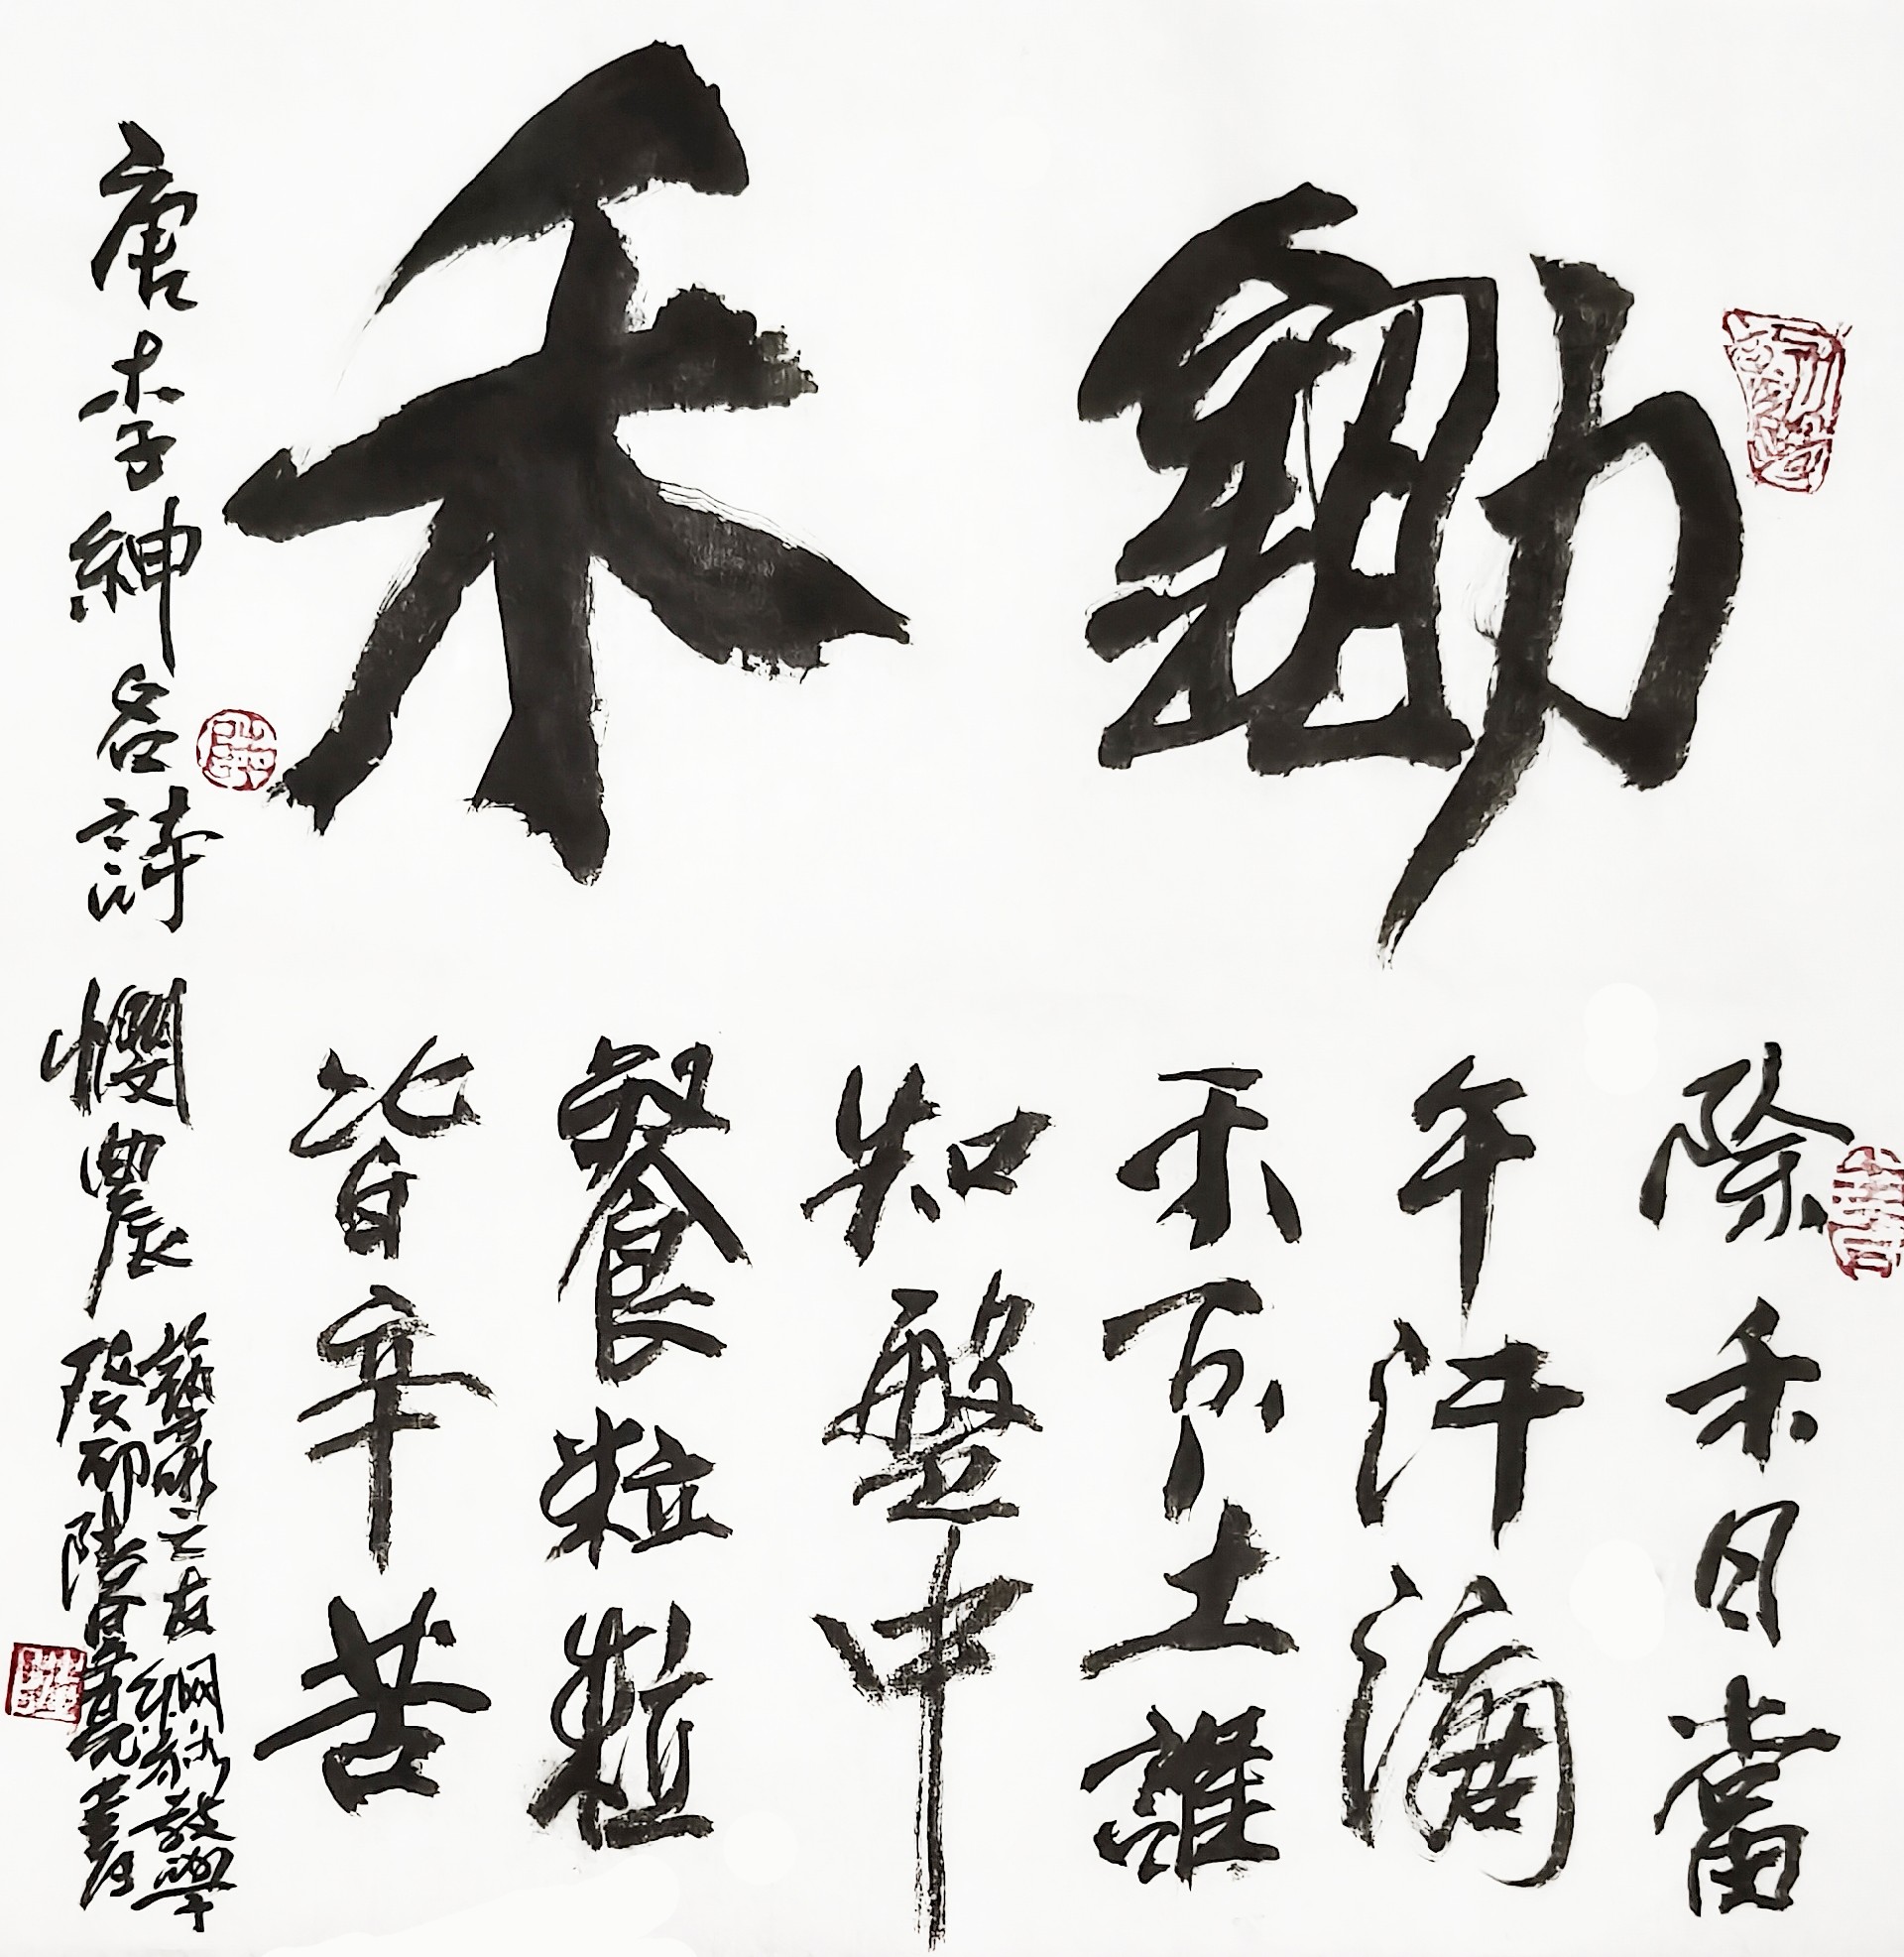 鋤禾
除禾日當
午汗滴
禾下土誰
知盤中
餐粒粒
皆辛苦
唐李紳名詩 憫農
之友網絡教學
癸卯陸春書